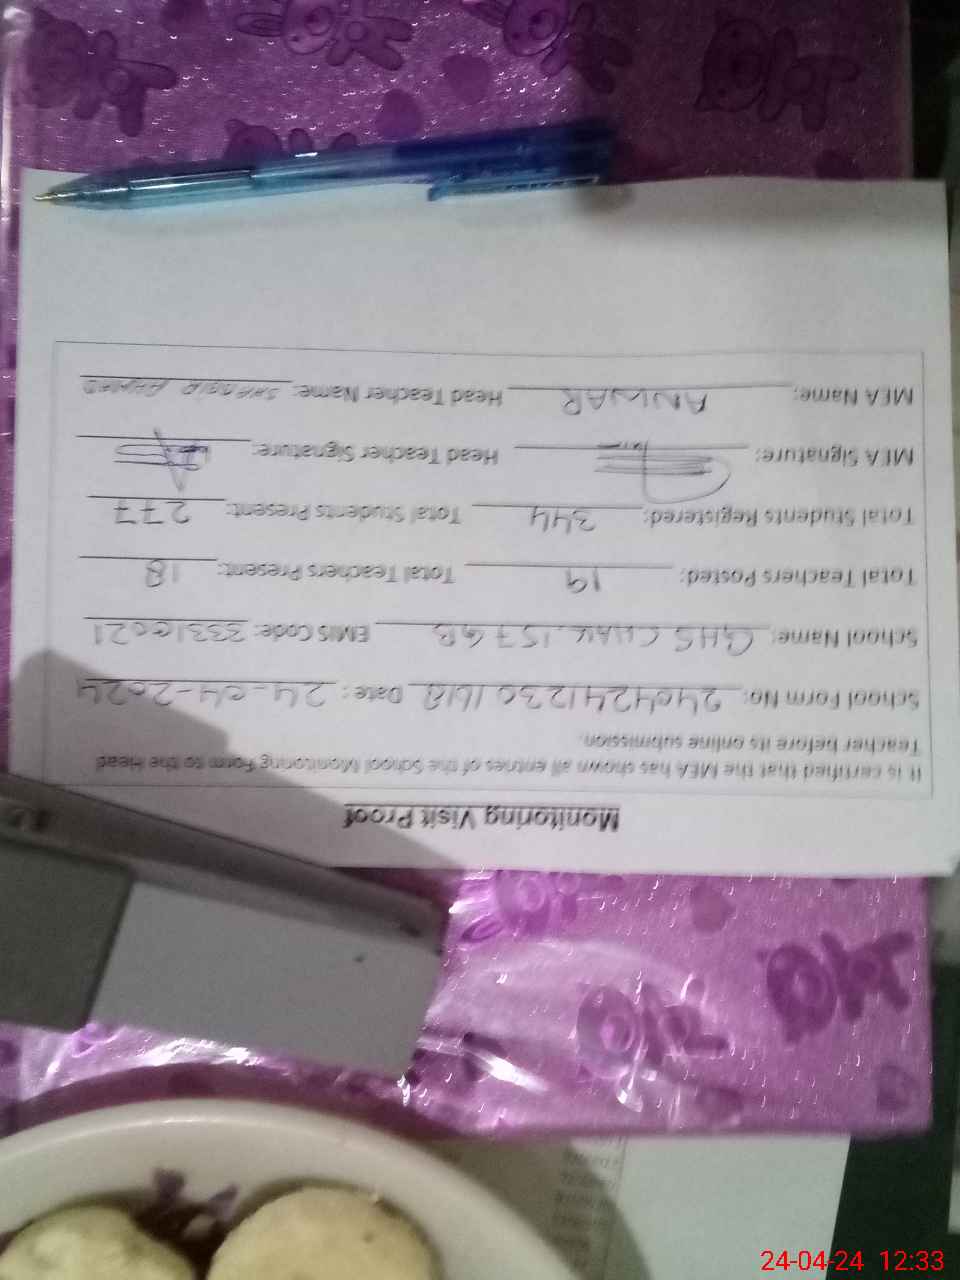 Monitoring Visit Proof
It is certified that the MEA has shown all entries of the School Monitoring Form to the Head
Teacher before its online submission.
School Form No: 24042412301618 Date: 24-04-2024
School Name: GHS CHAK. 157 GB EMIS Code: 33310021
Total Teachers Posted: 19 Total Teachers Present: 18
Total Students Registered: 344 Total Students Present: 277
MEA Signature: Head Teacher Signature:
MEA Name: ANWAR Head Teacher Name: AHMED
24-04-24 12:33